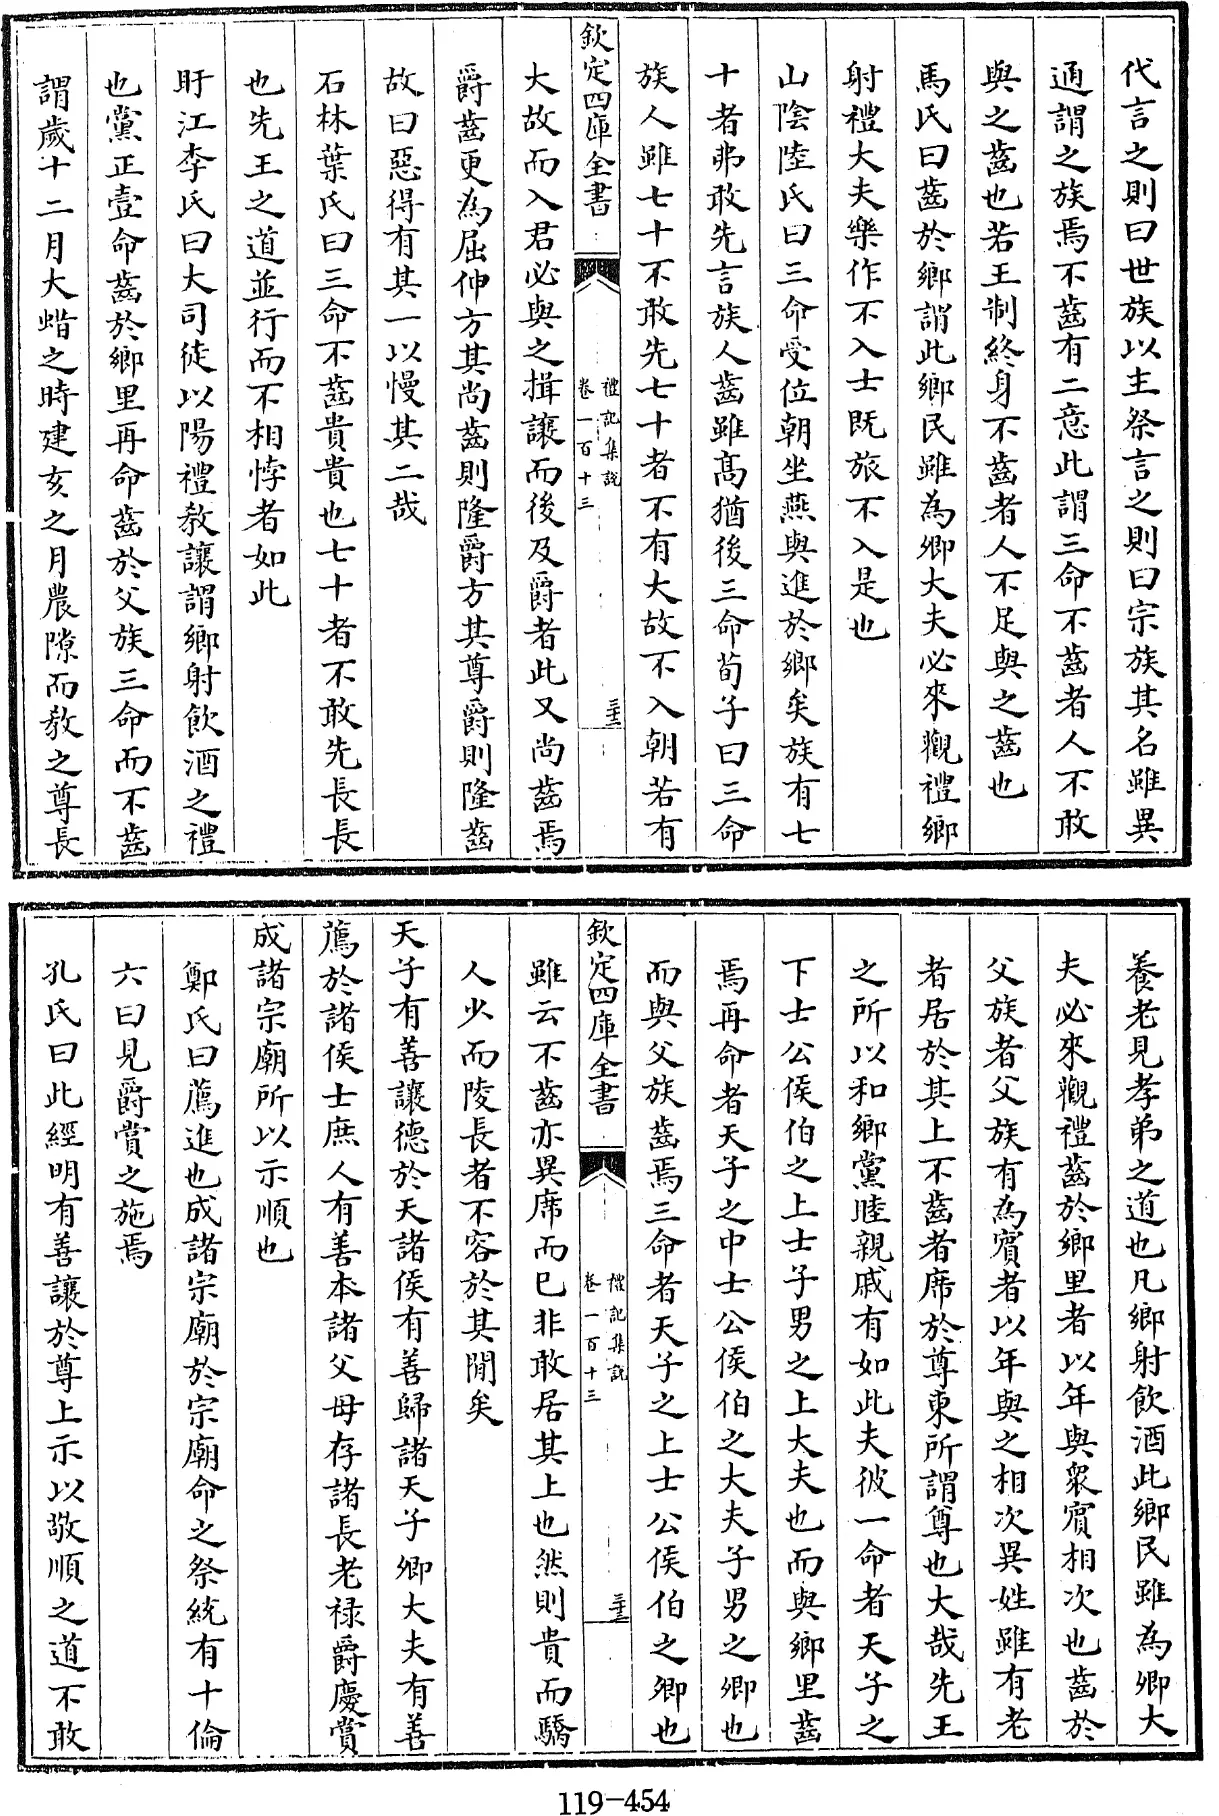 代言之則曰世族以主祭言之則曰宗族其名雖異
通謂之族焉不齒有二意此謂三命不齒者人不敢
與之齒也若王制終身不齒者人不足與之齒也
馬氏曰齒於鄉謂此鄉民雖為卿大夫必來觀禮鄉
射禮大夫樂作不入士既旅不入是也
山陰陸氏曰三命受位朝坐燕與進於鄉矣族有七
十者弗敢先言族人齒雖髙猶後三命荀子曰三命
族人雖七十不敢先七十者不有大故不入朝若有
欽定四庫全書
禮記集說
卷一百十三
三十二
大故而入君必與之揖讓而後及爵者此又尚齒焉
爵齒更為屈伸方其尚齒則隆爵方其尊爵則隆齒
故曰惡得有其一以慢其二哉
石林葉氏曰三命不齒貴貴也七十者不敢先長長
也先王之道並行而不相悖者如此
盱江李氏曰大司徒以陽禮教讓謂鄉射飲酒之禮
也黨正壹命齒於鄉里再命齒於父族三命而不齒
謂歲十二月大蜡之時建亥之月農隙而教之尊長
養老見孝弟之道也凡鄉射飲酒此鄉民雖為卿大
夫必來觀禮齒於鄉里者以年與衆賓相次也齒於
父族者父族有為賓者以年與之相次異姓雖有老
者居於其上不齒者席於尊東所謂尊也大哉先王
之所以和鄉黨睦親戚有如此夫彼一命者天子之
下士公侯伯之上士子男之上大夫也而與鄉里齒
焉再命者天子之中士公侯伯之大夫子男之卿也
而與父族齒焉三命者天子之上士公侯伯之卿也
欽定四庫全書
禮記集說
卷一百十三
三十三
雖云不齒亦異席而已非敢居其上也然則貴而驕
人少而陵長者不容於其閒矣
天子有善讓德於天諸侯有善歸諸天子卿大夫有善
薦於諸侯士庶人有善本諸父母存諸長老禄爵慶賞
成諸宗廟所以示順也
鄭氏曰薦進也成諸宗廟於宗廟命之祭統有十倫
六曰見爵賞之施焉
孔氏曰此經明有善讓於尊上示以敬順之道不敢
119-454